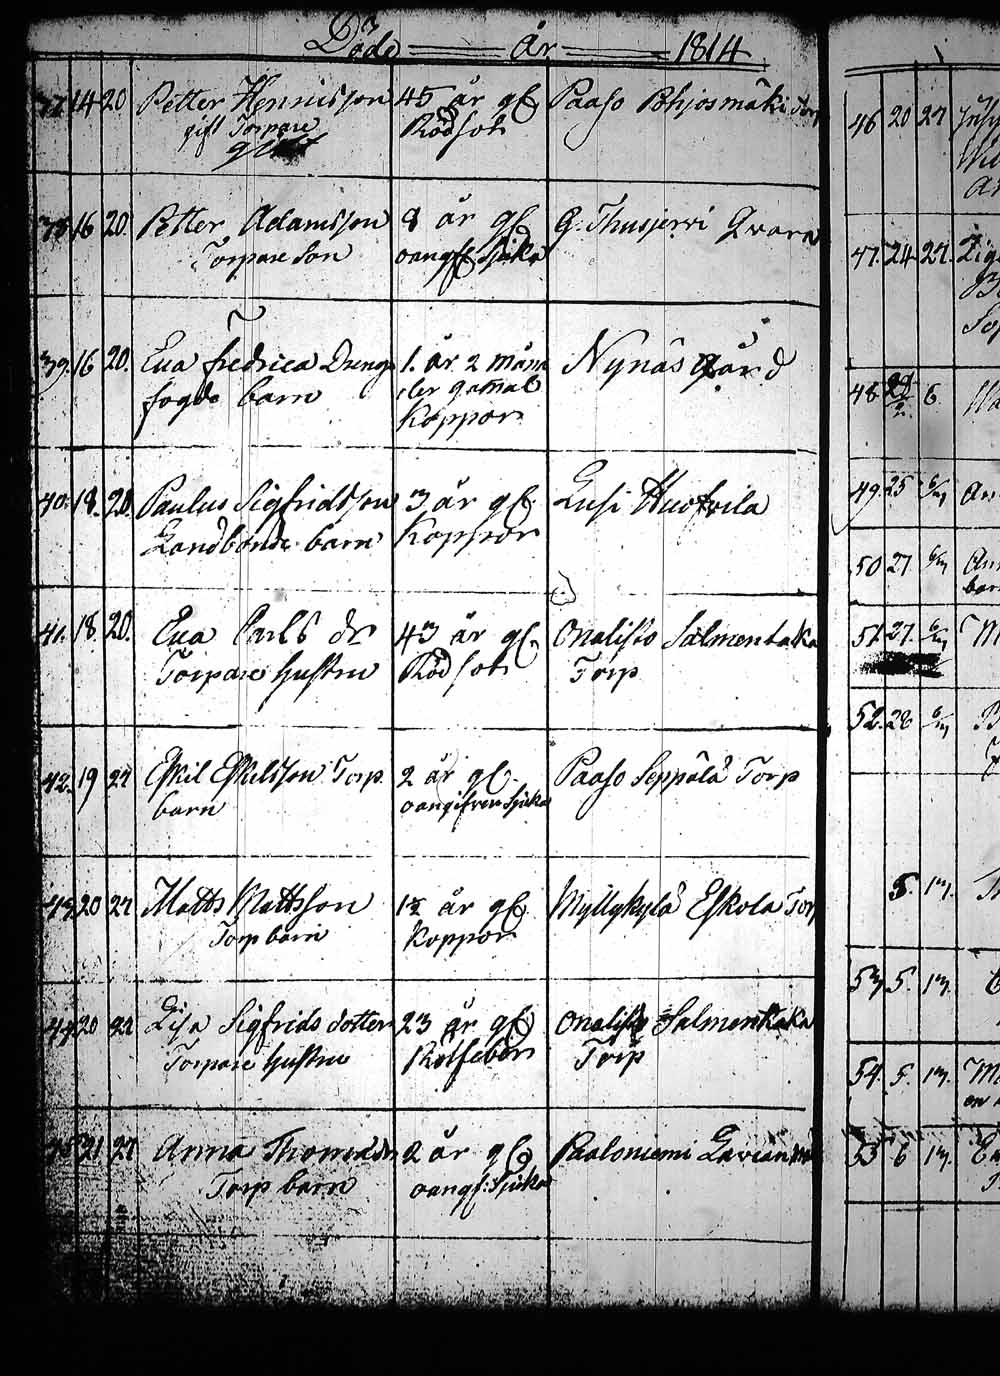 Döde år 1814
37. 14 20 Petter Hennisson 45 år gl. Paaso Pohjosmäki Torp
gift Torpare Rödsot
38 16 20. Petter Adamsson 8 år gl. G. Thusjerwi Qvarn
Torpare Son oangf. Sjuka
39. 16 20. Eva Fredrica Dreng 1. år 2 måna Nynäs gård
fogde barn der gamal
Koppor
40. 18. 20. Paulus Sigfridsson 3 år gl. Lusi Huovila
Landbonde barn Koppor
41. 18. 20. Eva Carls dr 43 år gl. Onalisto Salmentaka
Torpare hustru Rödsot Torp
42. 19 27 Eskil Eskilsson Torp 2 år gl. Paaso Seppälä Torp
barn oangifven Sjuka
43 20 27 Matts Mattsson 1½ år gl. Myllykylä Eskola Torp
Torp barn Koppor
44 20 27 Lisa Sigfrids dotter 23 år gl. Onalisto Salmentaka
Torpare hustru Rötfeber Torp
45 21 27 Anna Thomasdr 2 år gl. Paaloniemi
Torp barn oangf. Sjuka
46 20 27
47. 24 27.
48 28/2 6.
49. 25 6/m An
50 27. 6/m Ann
barn
51. 27. 6/m M
52. 28 6/m
5. 13.
53 5. 13.
54. 5. 13.
55 6 13.